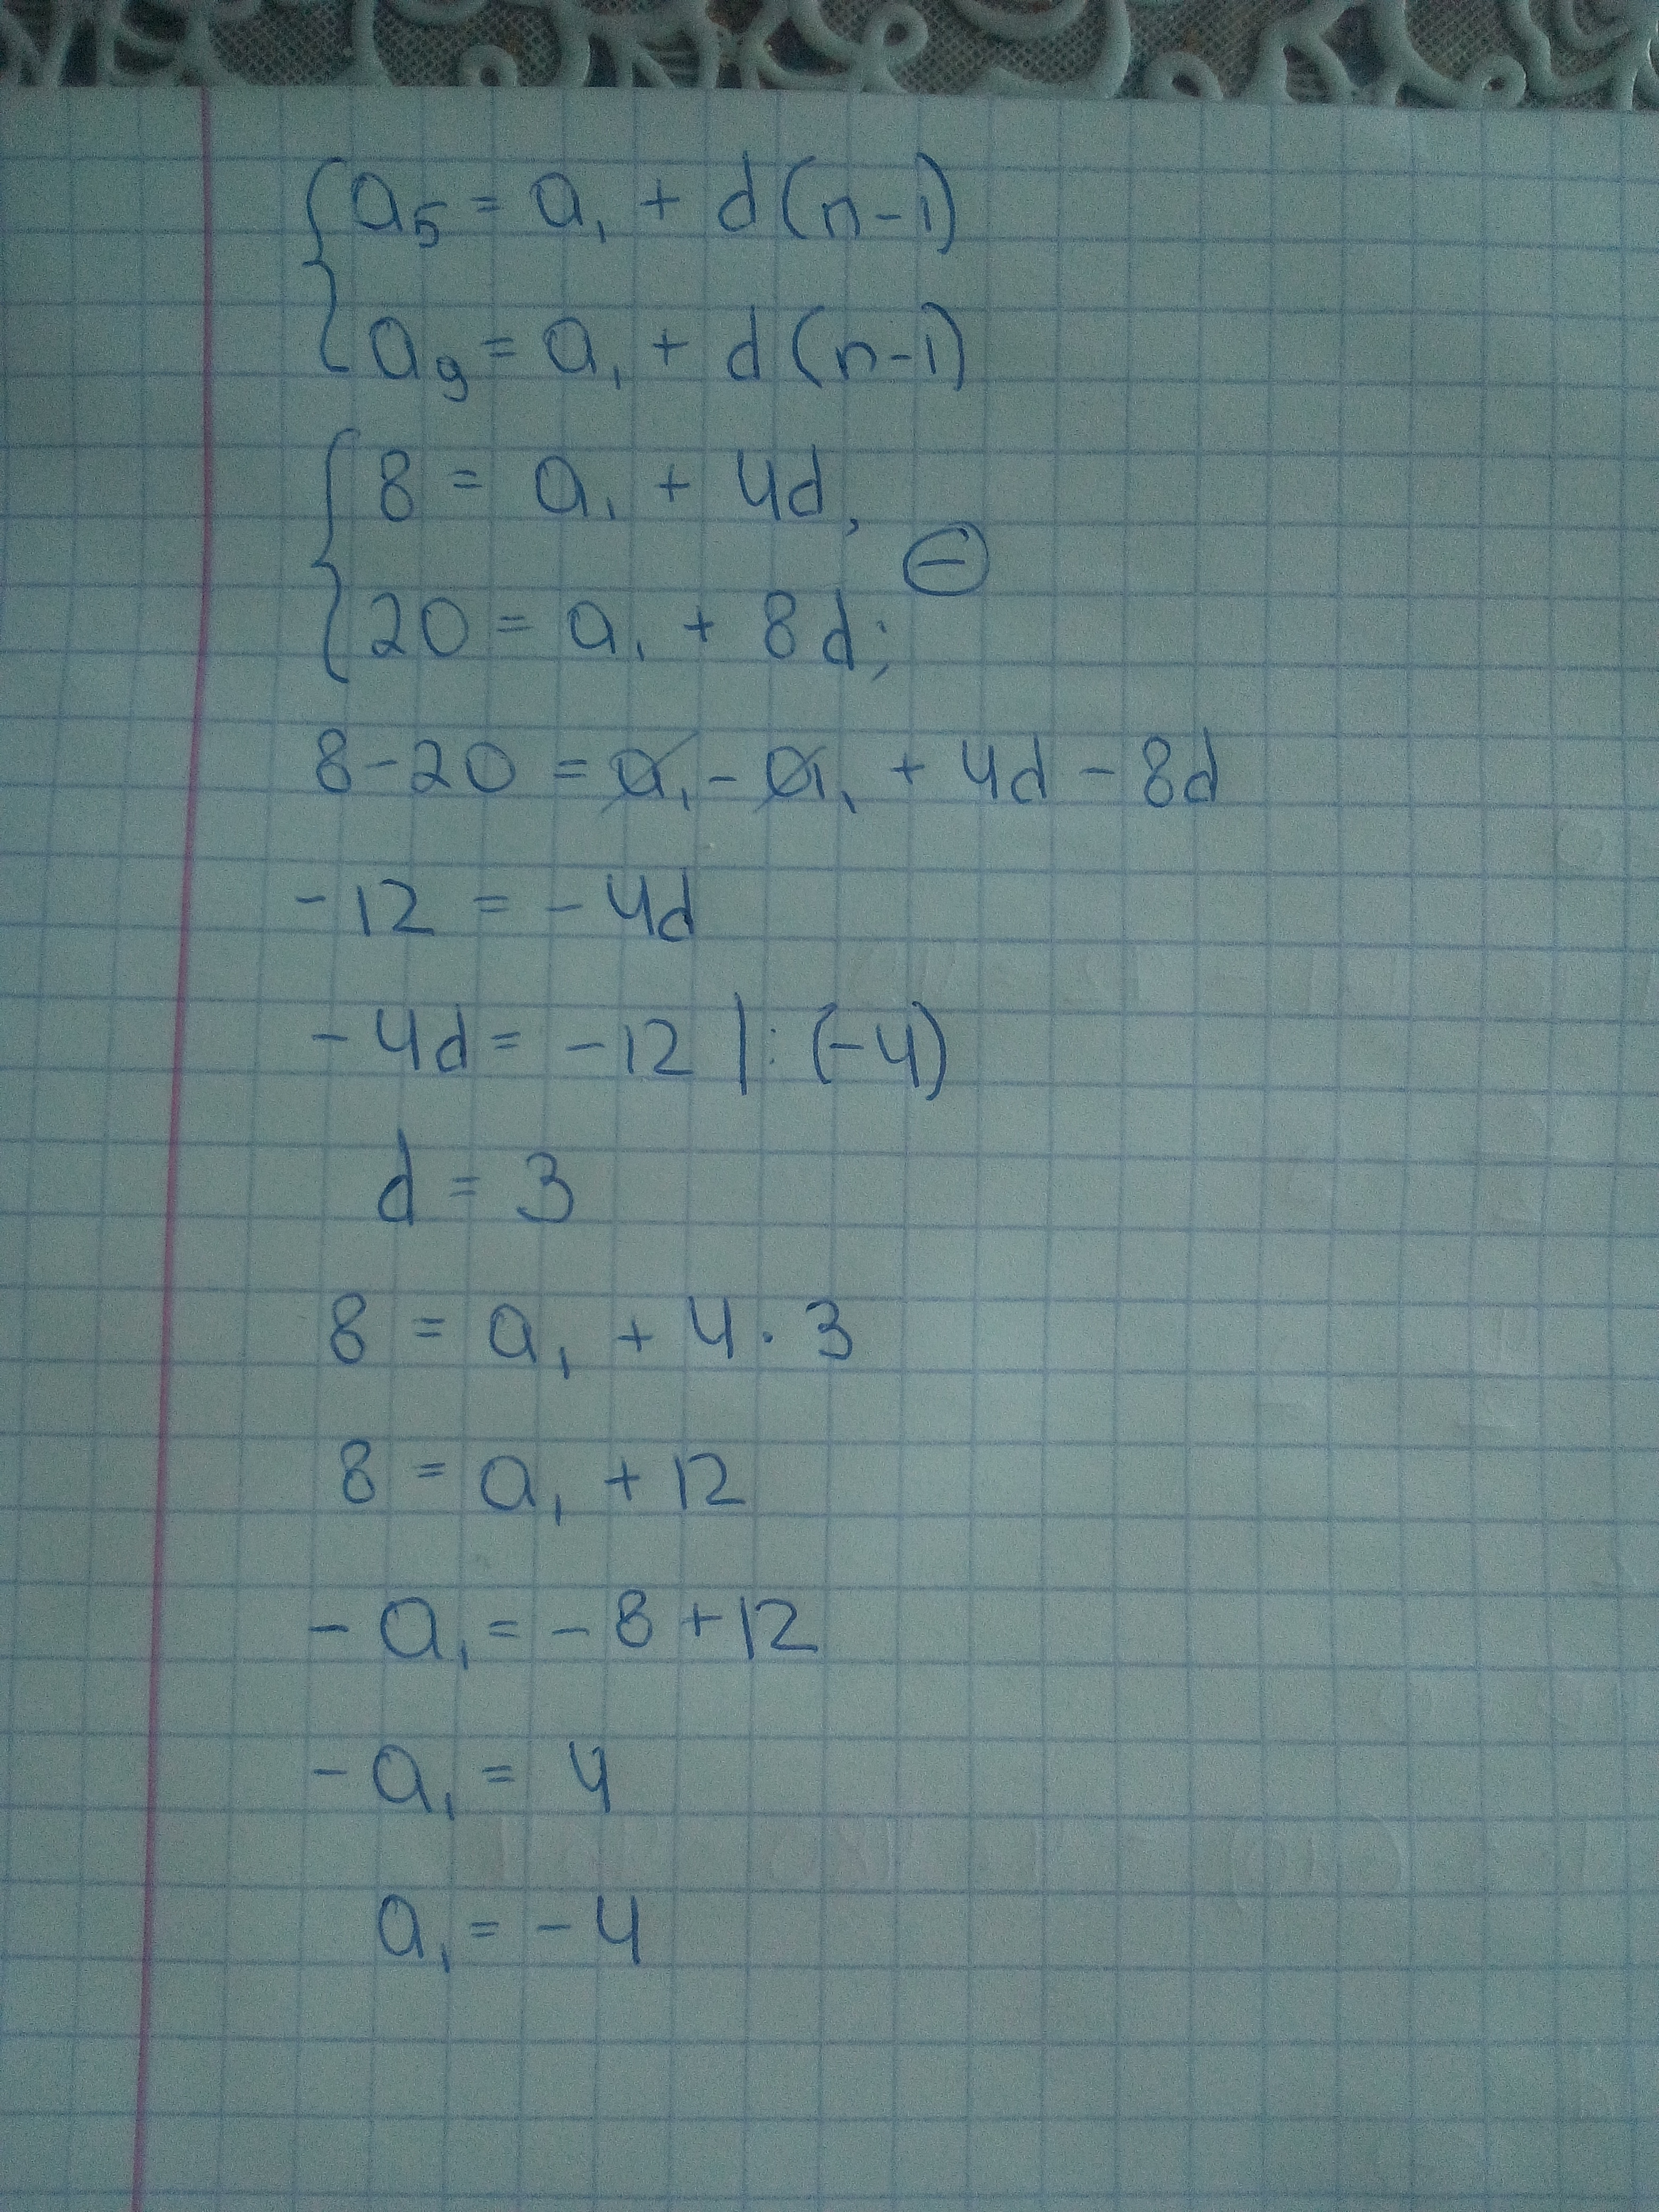 a₅ = a₁ + d(n-1)
a₉ = a₁ + d(n-1)
8 = a₁ + 4d,
⊖
20 = a₁ + 8d;
8-20 = a₁ - a₁ + 4d - 8d
-12 = -4d
-4d = -12 |: (-4)
d = 3
8 = a₁ + 4 · 3
8 = a₁ + 12
-a₁ = -8 + 12
-a₁ = 4
a₁ = -4